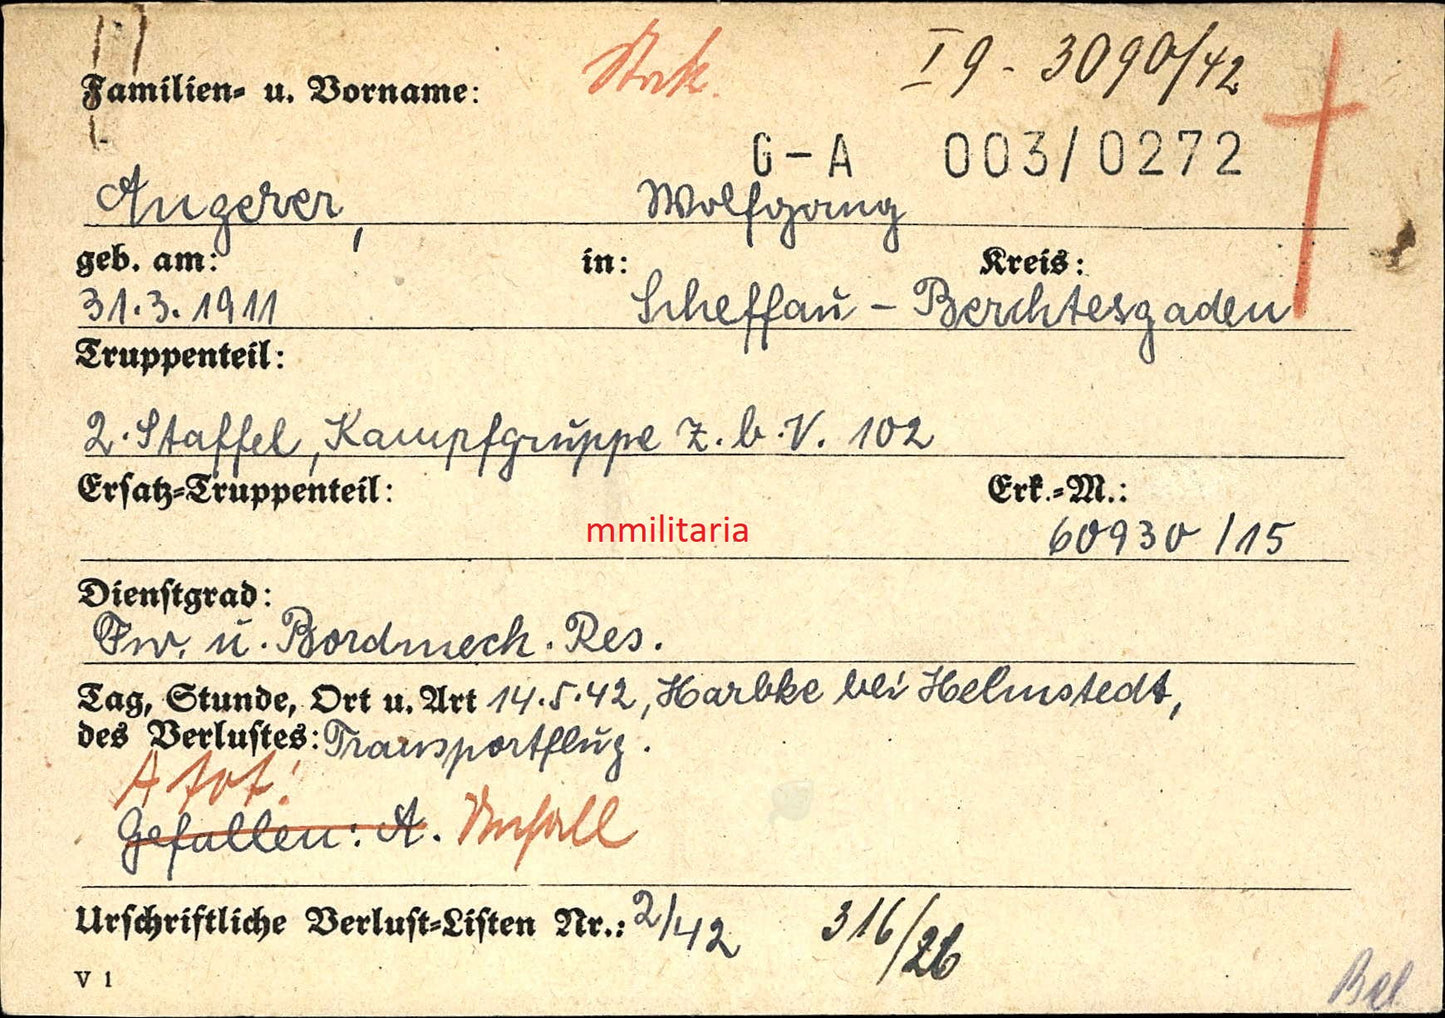 I 9 - 3090/42
Familien- u. Vorname:
G-A 003/0272
Angerer, Wolfgang
geb. am: in: Kreis:
31.3.1911 Scheffau - Berchtesgaden
Truppenteil:
2. Staffel, Kampfgruppe z. b. V. 102
Ersatz-Truppenteil: Erk.-M.:
mmilitaria
60930 /15
Dienstgrad:
Fw. u. Bordmech. Res.
Tag, Stunde, Ort u. Art 14.5.42, Harbke bei Helmstedt,
des Verlustes: Transportflug.
A tot!
Gefallen: A. Unfall
Urschriftliche Verlust-Listen Nr.: 2/42 316/26
V 1